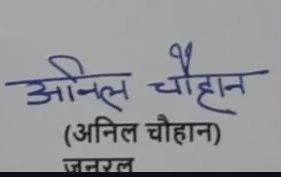 अनिल चौहान
(अनिल चौहान)
जनरल